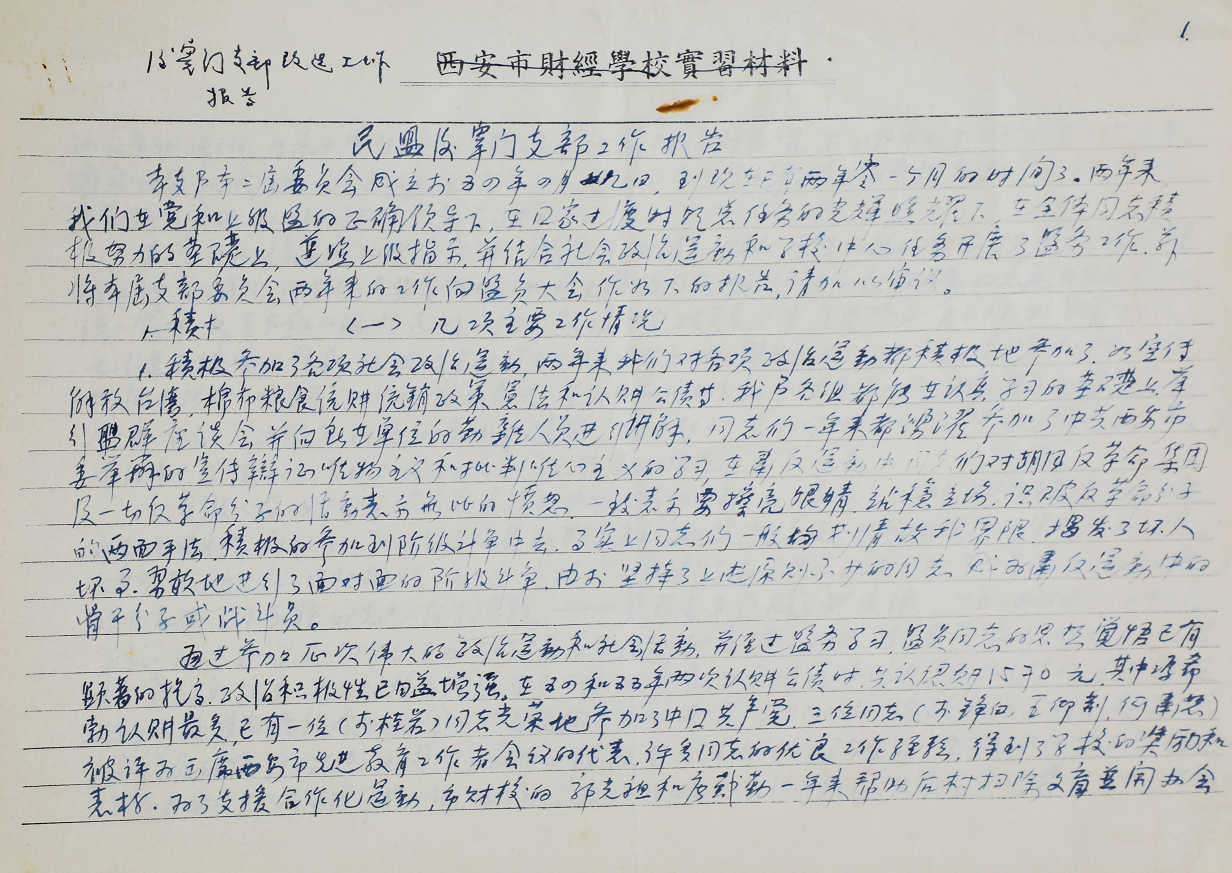 1.
后宰门支部改进工作 西安市財經學校實習材料
报告
民盟后宰门支部工作报告
本支部本二届委员会成立于五四年四月九日，到现在已有两年零一个月的时间了。两年来
我们在党和上级盟的正确领导下，在国家过渡时期总任务的光辉照耀下，在全体同志积
极努力的基礎上，遵照上级指示，并结合社会政治运动和学校中心任务开展了盟务工作，茲
将本届支部委员会两年来的工作向盟员大会作如下的报告，请加以审议。
1.積十 （一）几项主要工作情况
1.積极参加了各项社会政治运动，两年来我们对各项政治运动都積极地参加了，如宣传
解放台湾，棉布粮食统购统銷政策宪法和认购公债等，我户各组都能在认真学习的基礎上举
引盟群座谈会并向所在单位的勤雜人员进行讲解，同志们一年来都踴躍参加了中共西安市
委举辦的宣传辯证唯物主义和批判唯心主义的学习，在肃反运动中同志们对胡风反革命集团
及一切反革命分子的活動表示无比的愤怒，一致表示要擦亮眼睛，站稳立场，识破反革命分子
的两面手法，積极的参加到阶级斗争中去，事实上同志们一般均划清敌我界限，揭发了坏人
坏事，勇敢地进引了面对面的阶级斗争，由於坚持了上述原则不少的同志成为肃反运动中的
骨干分子或战斗员。
通过参加历次伟大的政治运動和社会活動，并经过盟务学习，盟员同志的思想覚悟已有
顕著的提高，政治积极性已日益增强。在五四和五五年两次认购公债时共认购1570元，其中
勃认购最多，已有一位（ 桂岩）同志光荣地参加了中囗共产党，三位同志（
被评为 西安市先进教育工作者会议的代表，许多同志的优良工作经验，得到了学校的奖励和
表扬。为了支援合作化运動，市财校的郭克担和 勤一年来帮助后村扫除文盲並開办会